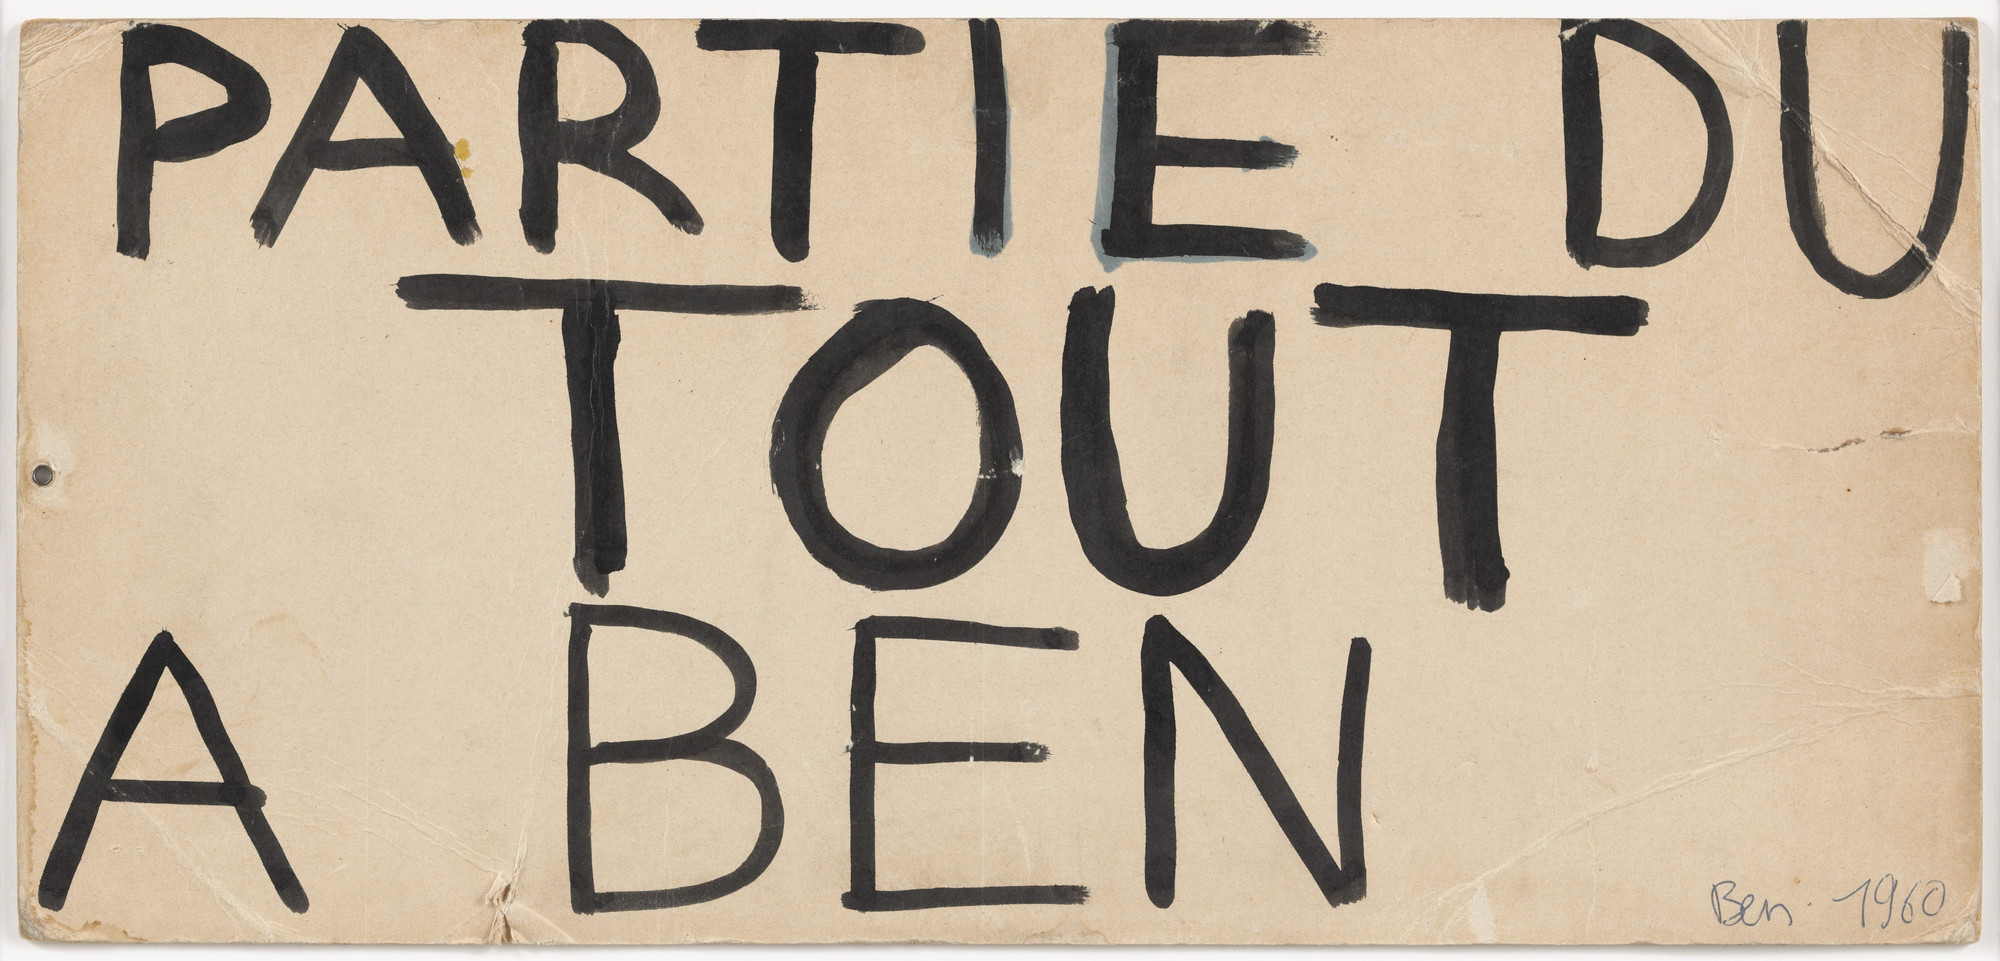 PARTIE DU
TOUT
A BEN
Ben. 1960